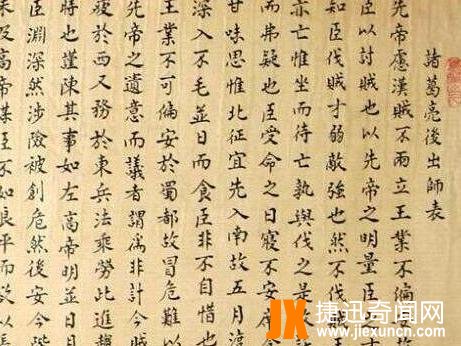 諸葛亮後出師表
先帝慮漢賊不兩立王業不偏
臣以討賊也以先帝之明量臣
知臣伐賊才弱敵強也然不伐
亦亡惟坐而待亡孰與伐之是
而弗疑也臣受命之日寢不安席
甘味思惟北征宜先入南故五月渡
深入不毛並日而食臣非不自惜也
王業不可偏安於蜀都故冒危難以
先帝之遺意而議者謂為非計今賊
疲於西又務於東兵法乘勞此進趨
時也謹陳其事如左高帝明並日月
臣淵深然涉險被創危然後安今陛
未及高帝謀臣不如良平而欲以長
JX 捷迅奇闻网
www.jiexuncn.com